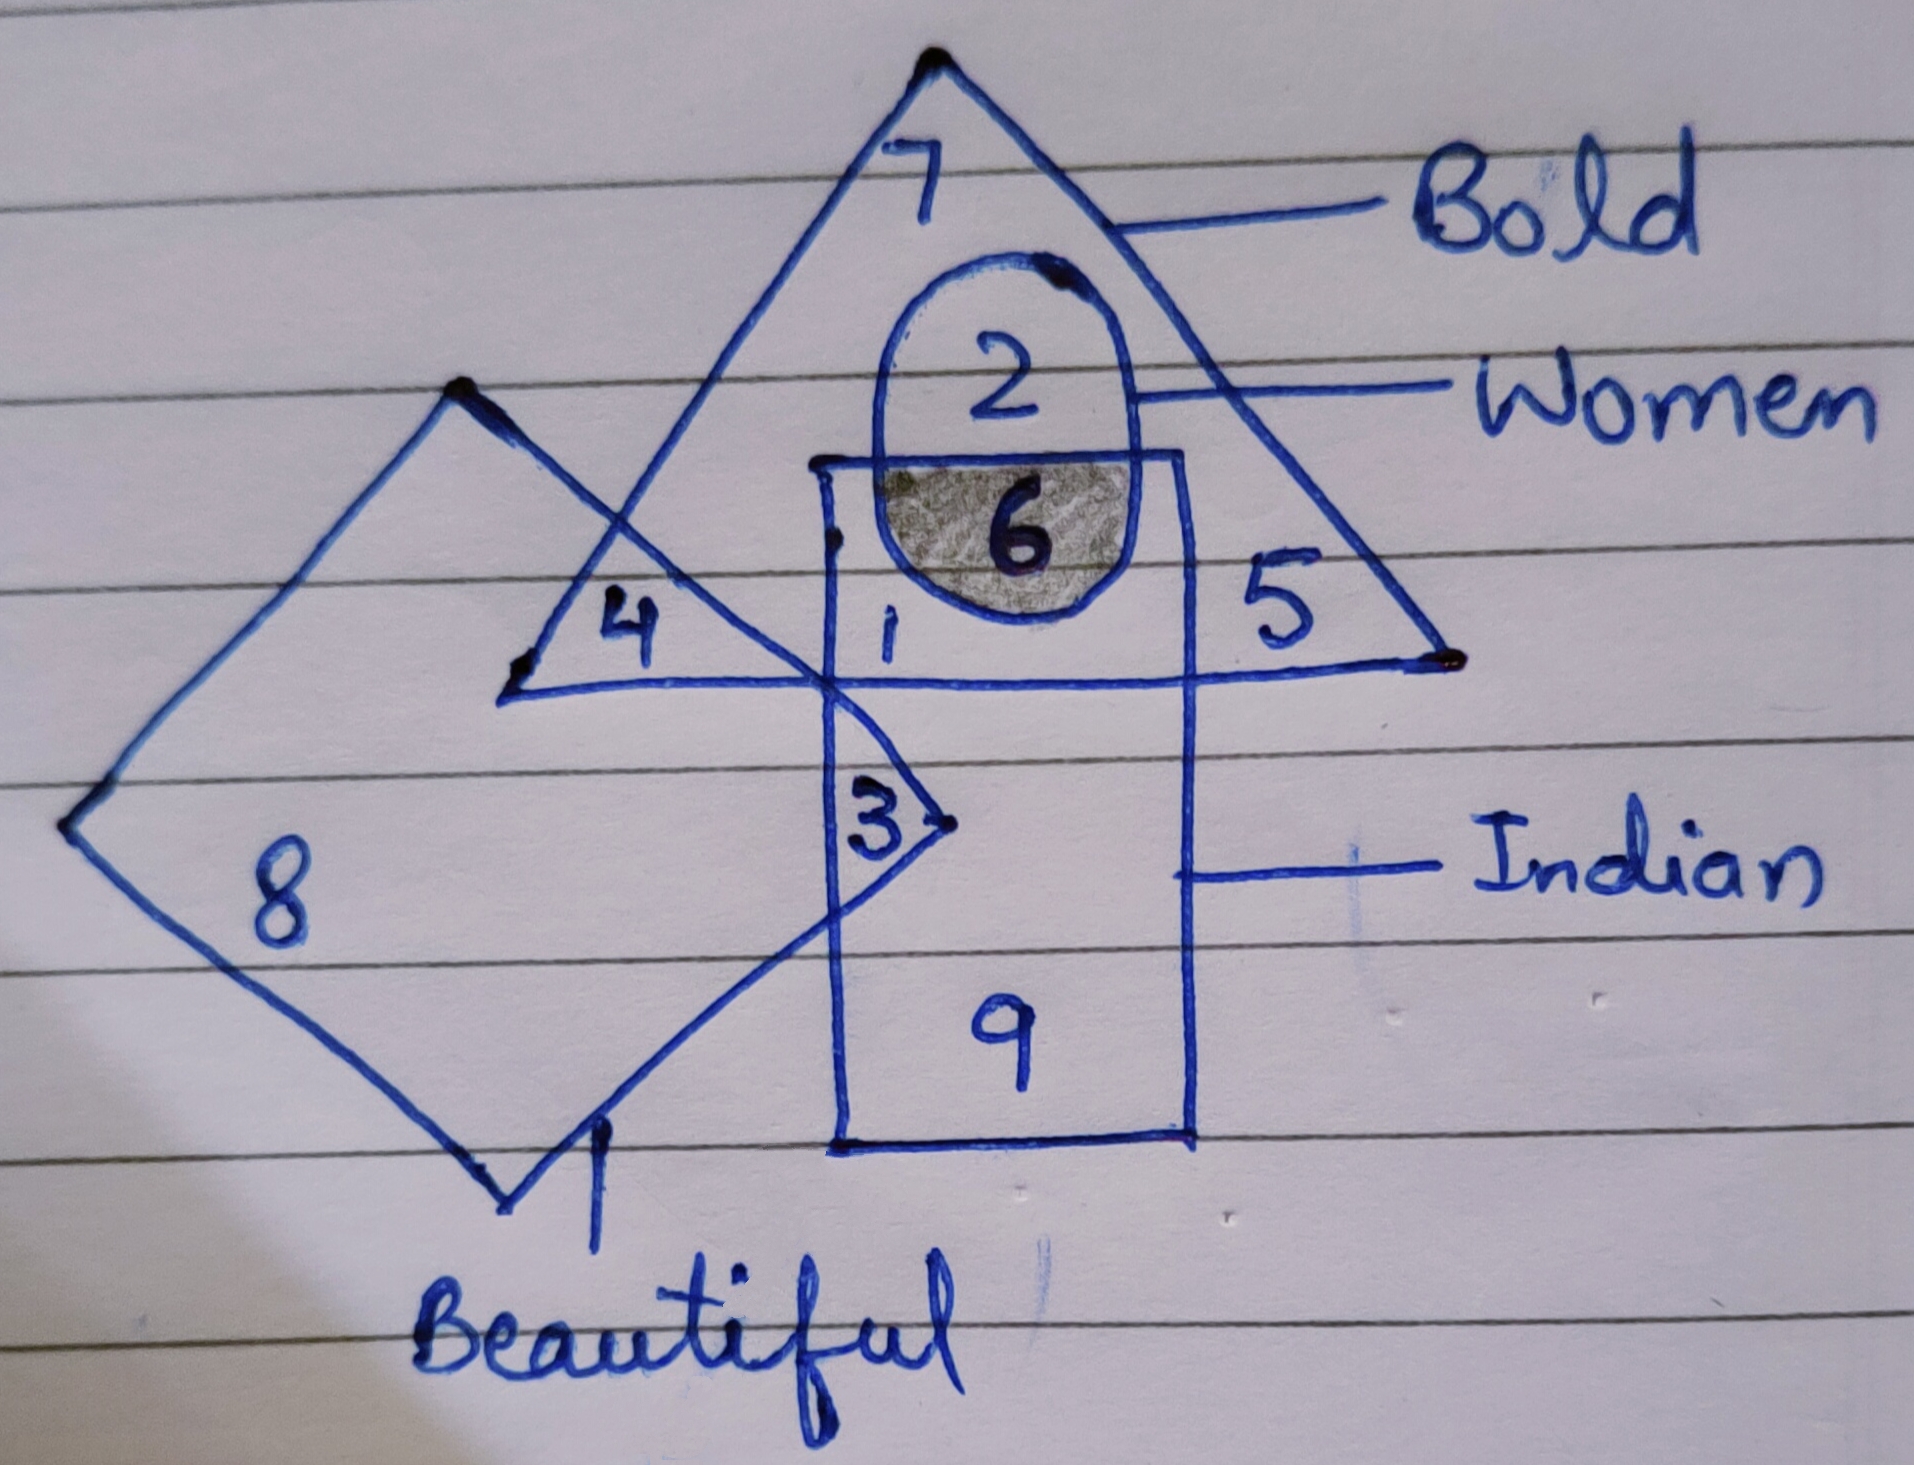 7
Bold
2
Women
6
4
1
5
3
Indian
8
9
Beautiful